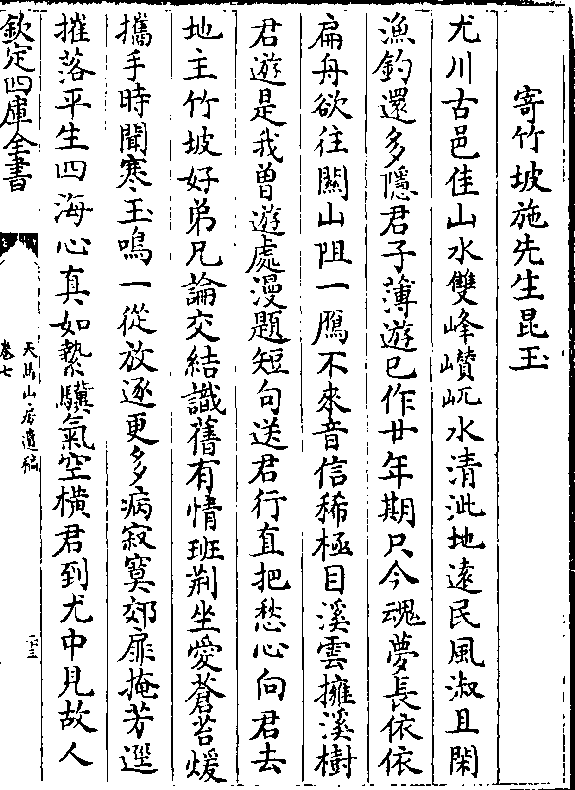 寄竹坡施先生昆玉
尤川古邑佳山水雙峰巑岏水清泚地遠民風淑且閑
漁釣還多隱君子薄遊已作廿年期只今魂夢長依依
扁舟欲往關山阻一鴈不來音信稀極目溪雲擁溪樹
君遊是我曽遊處漫題短句送君行直把愁心向君去
地主竹坡好弟兄論交結識舊有情班荆坐愛蒼苔煖
攜手時聞寒玉鳴一從放逐更多病寂寞郊扉掩芳逕
摧落平生四海心真如縶驥氣空橫君到尤中見故人
欽定四庫全書
天馬山房遺稿
卷七